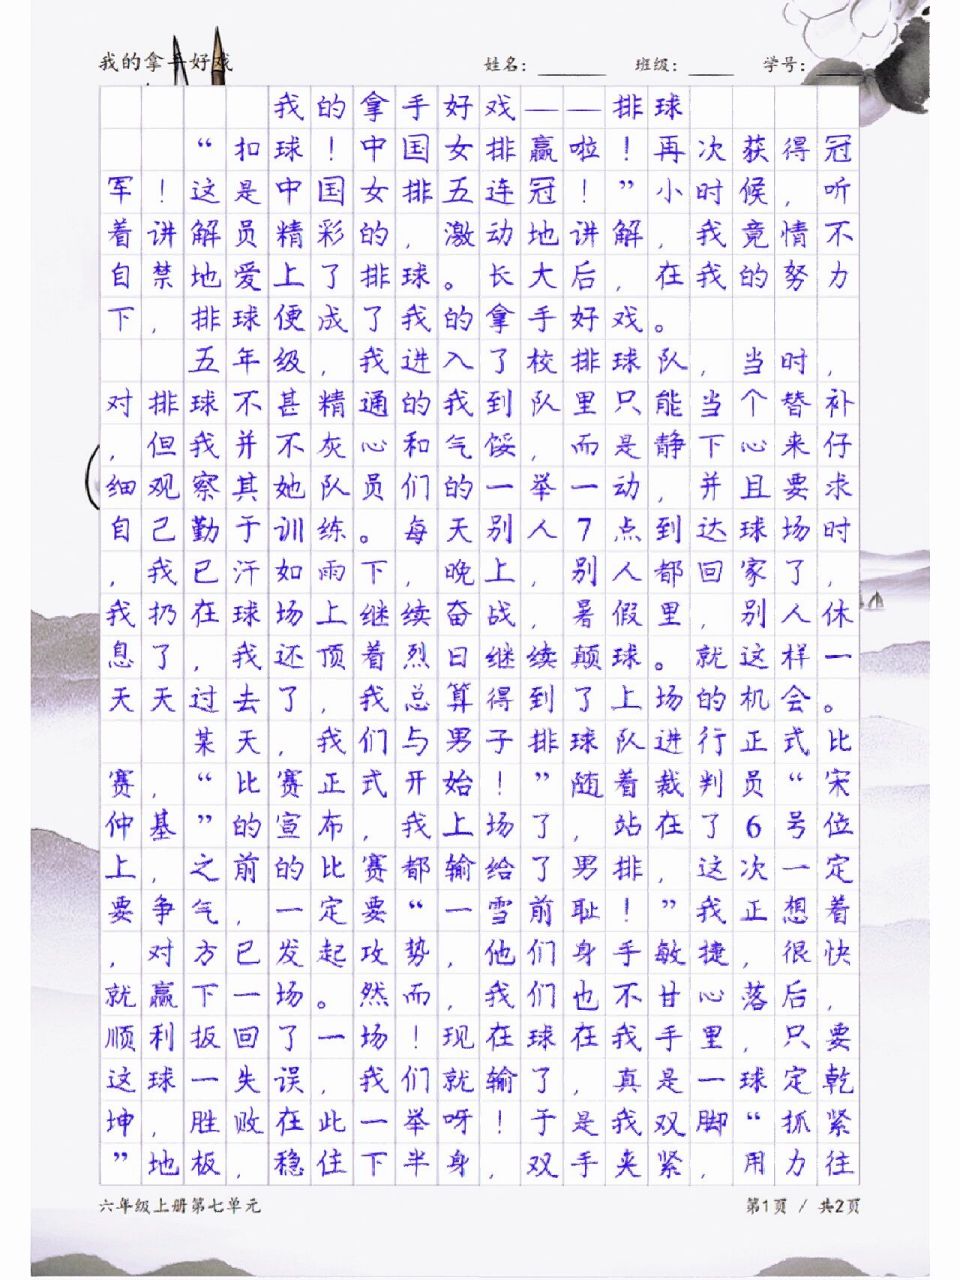 我的拿手好戏
姓名：
班级：
学号：
我的拿手好戏——排球
“扣球！中国女排赢啦！再次获得冠
军！这是中国女排五连冠！”小时候，听
着讲解员精彩的，激动地讲解，我竟情不
自禁地爱上了排球。长大后，在我的努力
下，排球便成了我的拿手好戏。
五年级，我进入了校排球队，当时，
对排球不甚精通的我到队里只能当个替补
，但我并不灰心和气馁，而是静下心来仔
细观察其她队员们的一举一动，并且要求
自己勤于训练。每天别人7点到达球场时
，我已汗如雨下，晚上，别人都回家了，
我扔在球场上继续奋战，暑假里，别人休
息了，我还顶着烈日继续颠球。就这样一
天天过去了，我总算得到了上场的机会。
某天，我们与男子排球队进行正式比
赛，“比赛正式开始！”随着裁判员“宋
仲基”的宣布，我上场了，站在了6号位
上，之前的比赛都输给了男排，这次一定
要争气，一定要“一雪前耻！”我正想着
，对方已发起攻势，他们身手敏捷，很快
就赢下一场。然而，我们也不甘心落后，
顺利扳回了一场！现在球在我手里，只要
这球一失误，我们就输了，真是一球定乾
坤，胜败在此一举呀！于是我双脚“抓紧
”地板，稳住下半身，双手夹紧，用力往
六年级上册第七单元
第1页 / 共2页